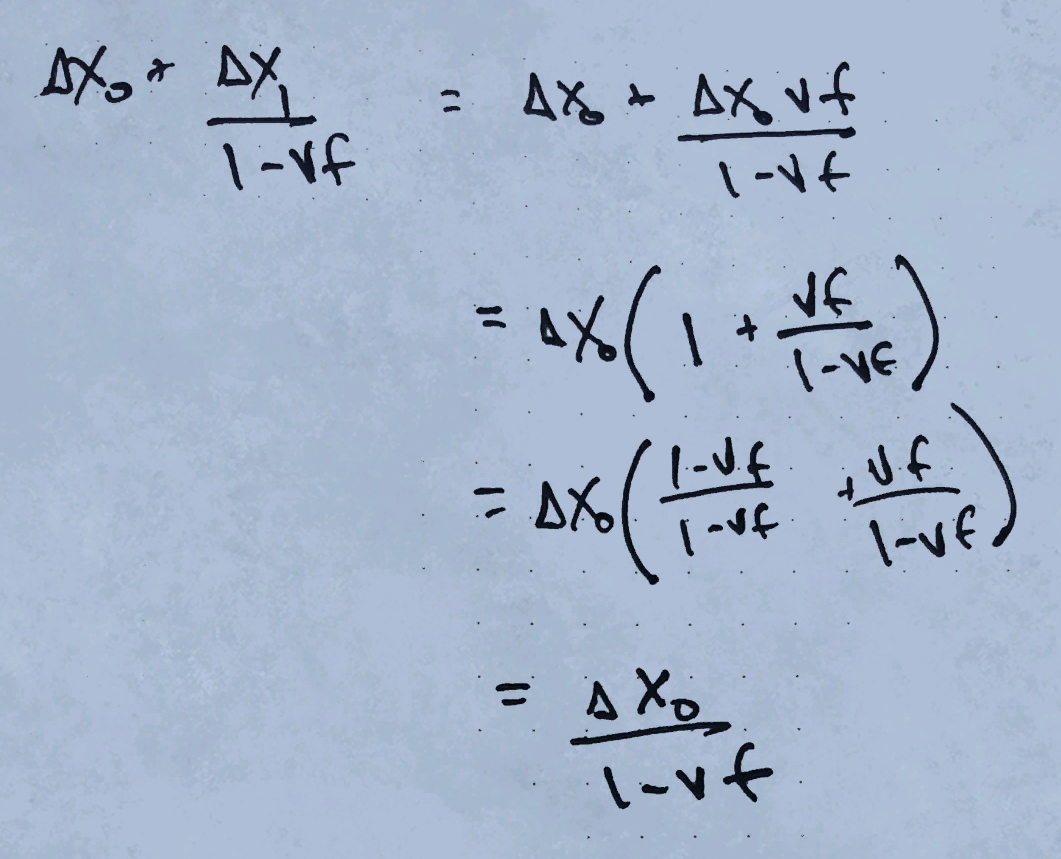 ΔX₀ + ΔX₁/(1-vf) = ΔX₀ + ΔX₀vf/(1-vf)
= ΔX₀(1 + vf/(1-vf))
= ΔX₀((1-vf)/(1-vf) + vf/(1-vf))
= ΔX₀/(1-vf)